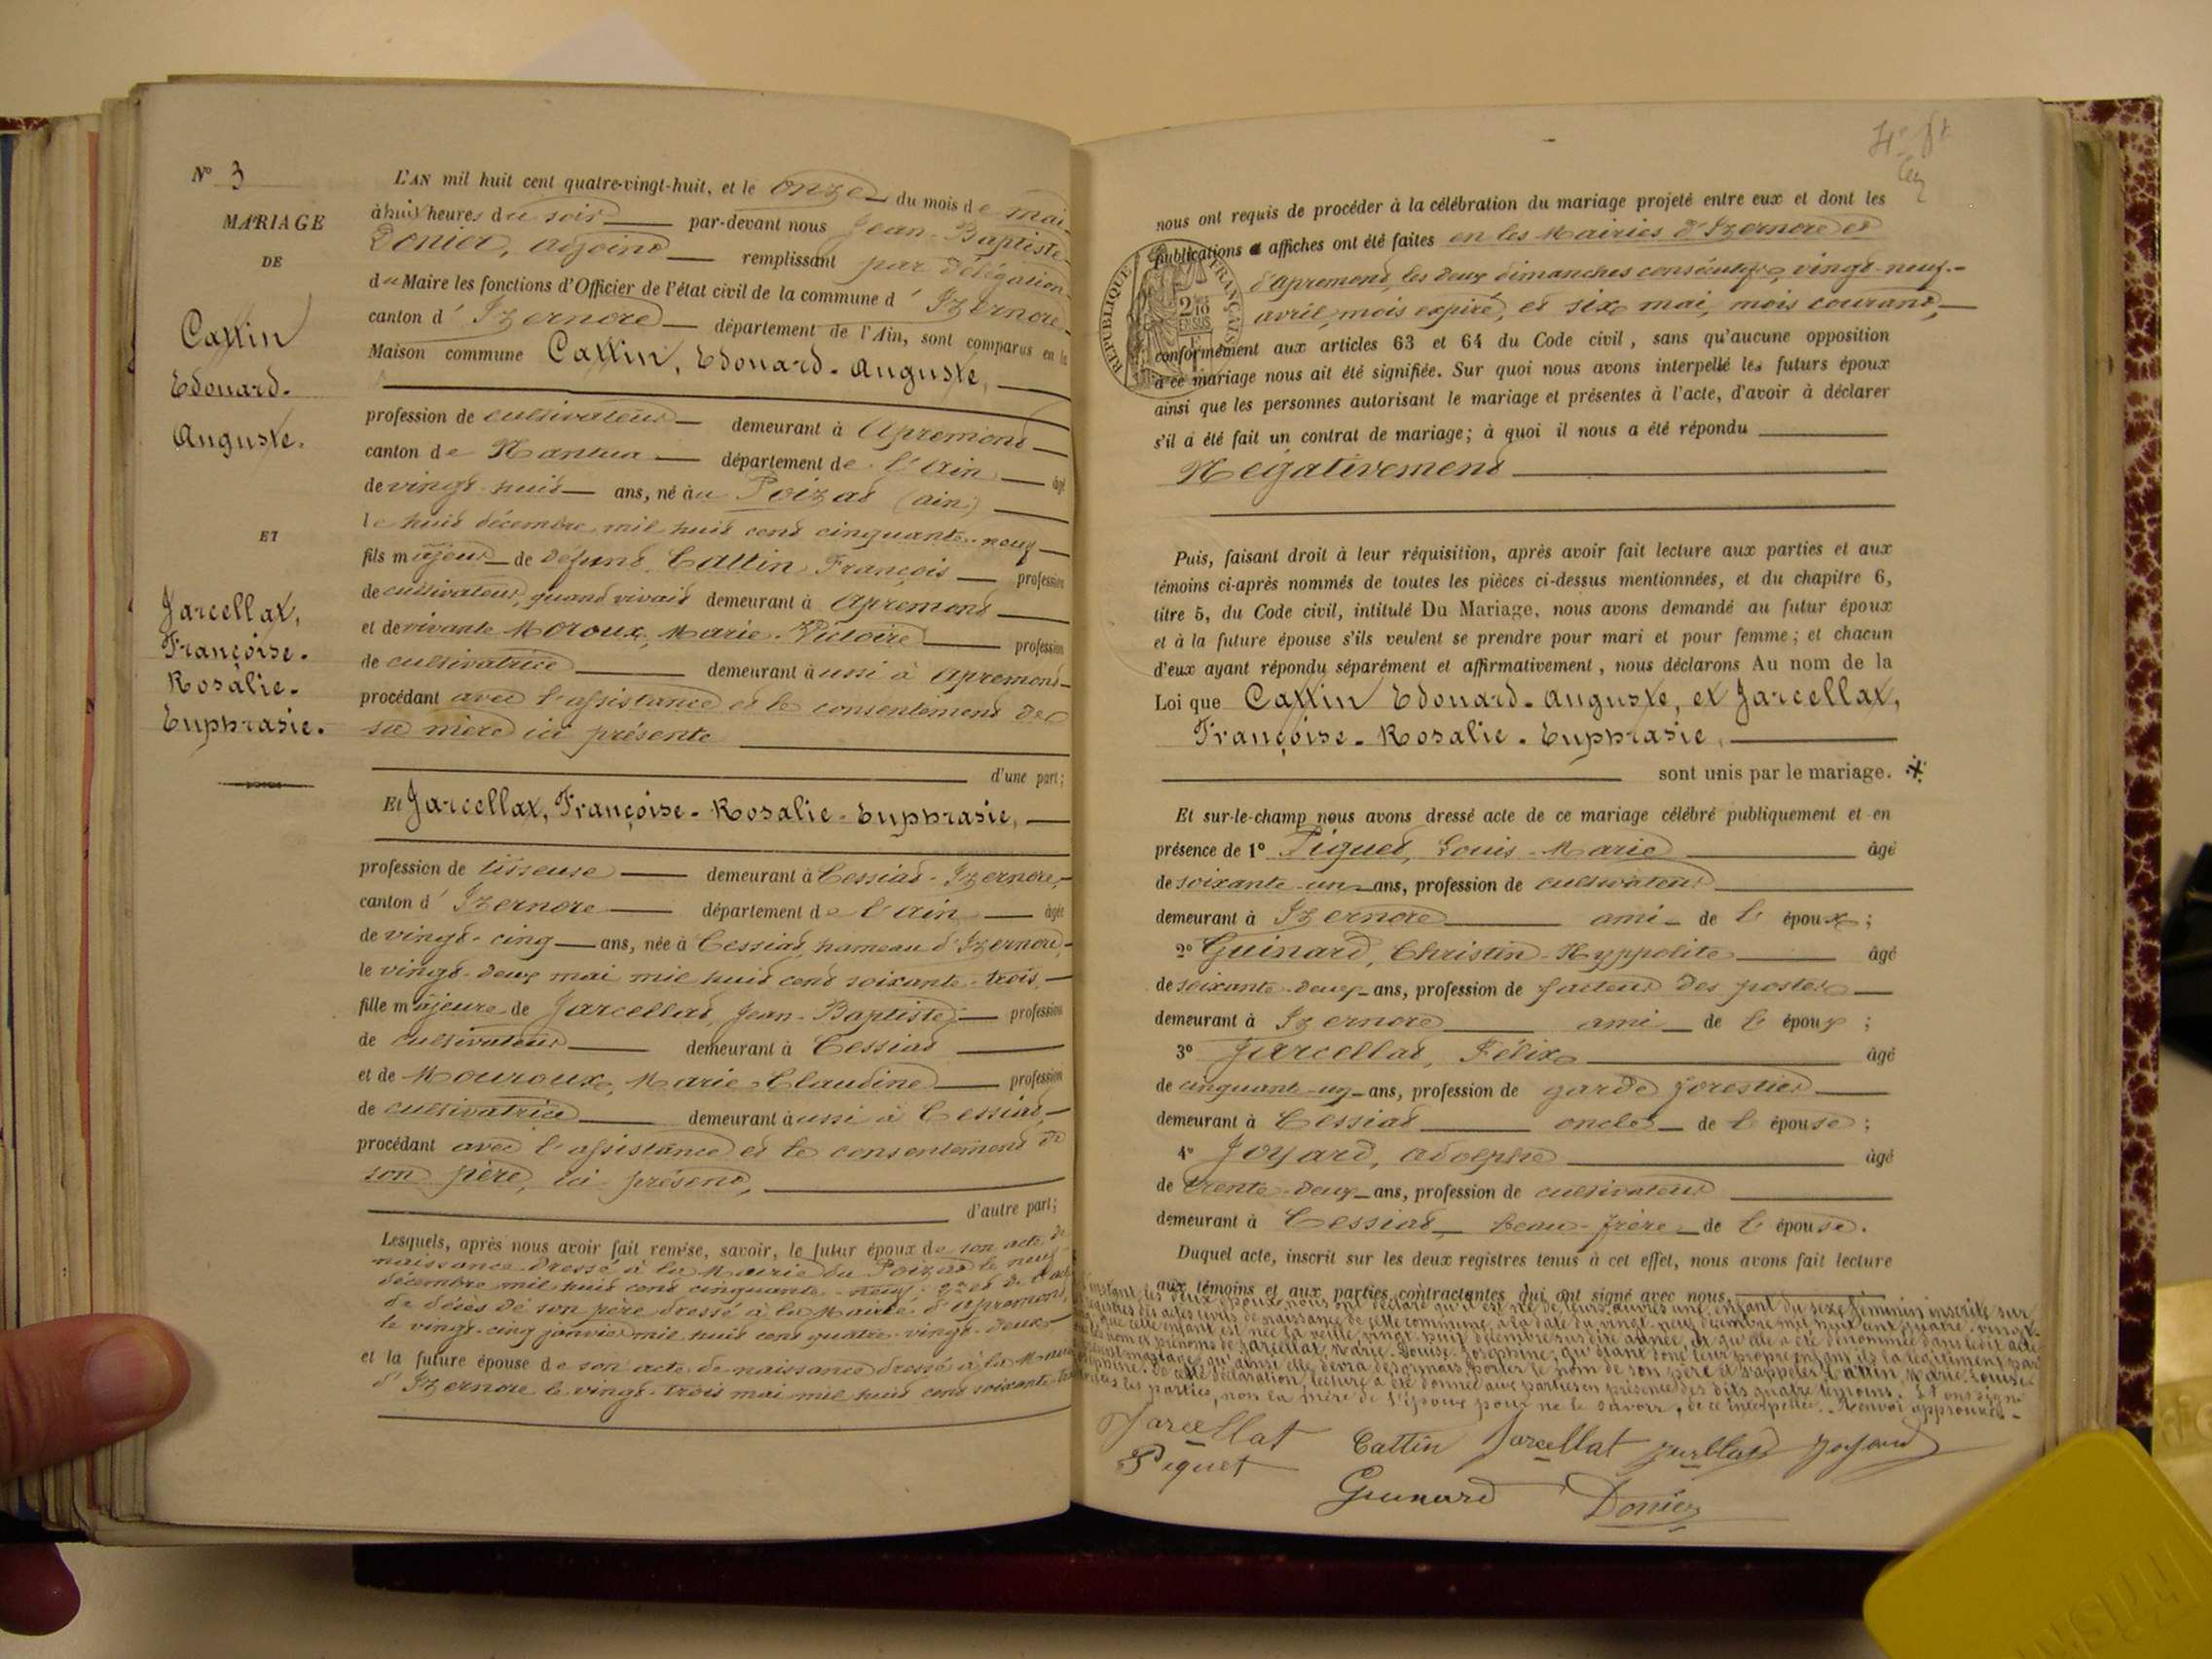 N° 3
MARIAGE
DE
Cattin
Edouard.
Auguste.
ET
Jarcellat,
Françoise.
Rosalie.
Euphrasie.
L'AN mil huit cent quatre-vingt-huit, et le onze du mois de mai
à huit heures du soir par-devant nous Jean-Baptiste
Donier, adjoint remplissant par délégation
du Maire les fonctions d'Officier de l'état civil de la commune d'Izernore
canton d'Izernore département de l'Ain, sont comparus en la
Maison commune Cattin, Edouard-Auguste,
profession de cultivateur demeurant à Apremont
canton de Nantua département de l'Ain âgé
de vingt-huit ans, né au Poizat (ain)
le huit décembre mil huit cent cinquante-neuf
fils majeur de défunt Cattin François profession
de cultivateur, quand vivait demeurant à Apremont
et de vivante Moroux, Marie-Victoire profession
de cultivatrice demeurant aussi à Apremont
procédant avec l'assistance et le consentement de
sa mère ici présente
d'une part;
Et Jarcellat, Françoise-Rosalie-Euphrasie,
profession de tisseuse demeurant à Cessiat-Izernore,
canton d'Izernore département de l'Ain âgée
de vingt-cinq ans, née à Cessiat, hameau d'Izernore,
le vingt-deux mai mil huit cent soixante-trois
fille majeure de Jarcellat, Jean-Baptiste, profession
de cultivateur demeurant à Cessiat
et de Mouroux, Marie-Claudine profession
de cultivatrice demeurant aussi à Cessiat
procédant avec l'assistance et le consentement de
son père, ici présent,
d'autre part;
Lesquels, après nous avoir fait remise, savoir, le futur époux de son acte de
naissance dressé à la Mairie du Poizat le neuf
décembre mil huit cent cinquante-neuf; 2° et de l'acte
de décès de son père dressé à la Mairie d'Apremont,
le vingt-cinq janvier mil huit cent quatre-vingt-deux
et la future épouse de son acte de naissance dressé à la Mairie
d'Izernore le vingt-trois mai mil huit cent soixante
nous ont requis de procéder à la célébration du mariage projeté entre eux et dont les
publications et affiches ont été faites en les Mairies d'Izernore et
d'Apremont, les deux dimanches consécutifs, vingt-neuf
avril, mois expiré, et six mai, mois courant,
RÉPUBLIQUE FRANÇAISE
conformément aux articles 63 et 64 du Code civil, sans qu'aucune opposition
à ce mariage nous ait été signifiée. Sur quoi nous avons interpellé les futurs époux
ainsi que les personnes autorisant le mariage et présentes à l'acte, d'avoir à déclarer
s'il a été fait un contrat de mariage; à quoi il nous a été répondu
Négativement
Puis, faisant droit à leur réquisition, après avoir fait lecture aux parties et aux
témoins ci-après nommés de toutes les pièces ci-dessus mentionnées, et du chapitre 6,
titre 5, du Code civil, intitulé Du Mariage, nous avons demandé au futur époux
et à la future épouse s'ils veulent se prendre pour mari et pour femme; et chacun
d'eux ayant répondu séparément et affirmativement, nous déclarons Au nom de la
Loi que Cattin Edouard-Auguste, et Jarcellat,
Françoise-Rosalie-Euphrasie,
sont unis par le mariage.
Et sur-le-champ nous avons dressé acte de ce mariage célébré publiquement et en
présence de 1° Piquet, Louis-Marie âgé
de soixante-un ans, profession de cultivateur
demeurant à Izernore ami de l'époux;
2° Guinard, Christin-Hyppolite âgé
de soixante-deux ans, profession de facteur des postes
demeurant à Izernore ami de l'époux;
3° Jarcellat, Félix âgé
de cinquante-un ans, profession de garde forestier
demeurant à Cessiat oncle de l'épouse;
4° Joyard, Adolphe âgé
de trente-deux ans, profession de cultivateur
demeurant à Cessiat beau-frère de l'épouse.
Duquel acte, inscrit sur les deux registres tenus à cet effet, nous avons fait lecture
aux témoins et aux parties contractantes qui ont signé avec nous.
les deux époux nous ont déclaré qu'il est né de leurs œuvres une enfant du sexe féminin inscrite sur
registres des actes civils de naissance de cette commune, à la date du vingt-neuf décembre mil huit cent quatre-vingt-
que cette enfant est née la veille, vingt-huit décembre susdite année, et qu'elle a été dénommée dans ledit acte
les nom et prénoms de Jarcellat, Marie-Louise-Joséphine; qu'étant donc leur propre enfant, ils la légitiment par
mariage, qu'ainsi elle devra désormais porter le nom de son père et s'appeler Cattin, Marie-Louise-
Joséphine. De cette déclaration, lecture a été donnée aux parties en présence des dits quatre témoins. Et ont signé
les parties, non la mère de l'époux pour ne le savoir, de ce interpellée. Renvoi approuvé.
Jarcellat Cattin Jarcellat Jarcellat Joyard
Piquet Guinard Donier